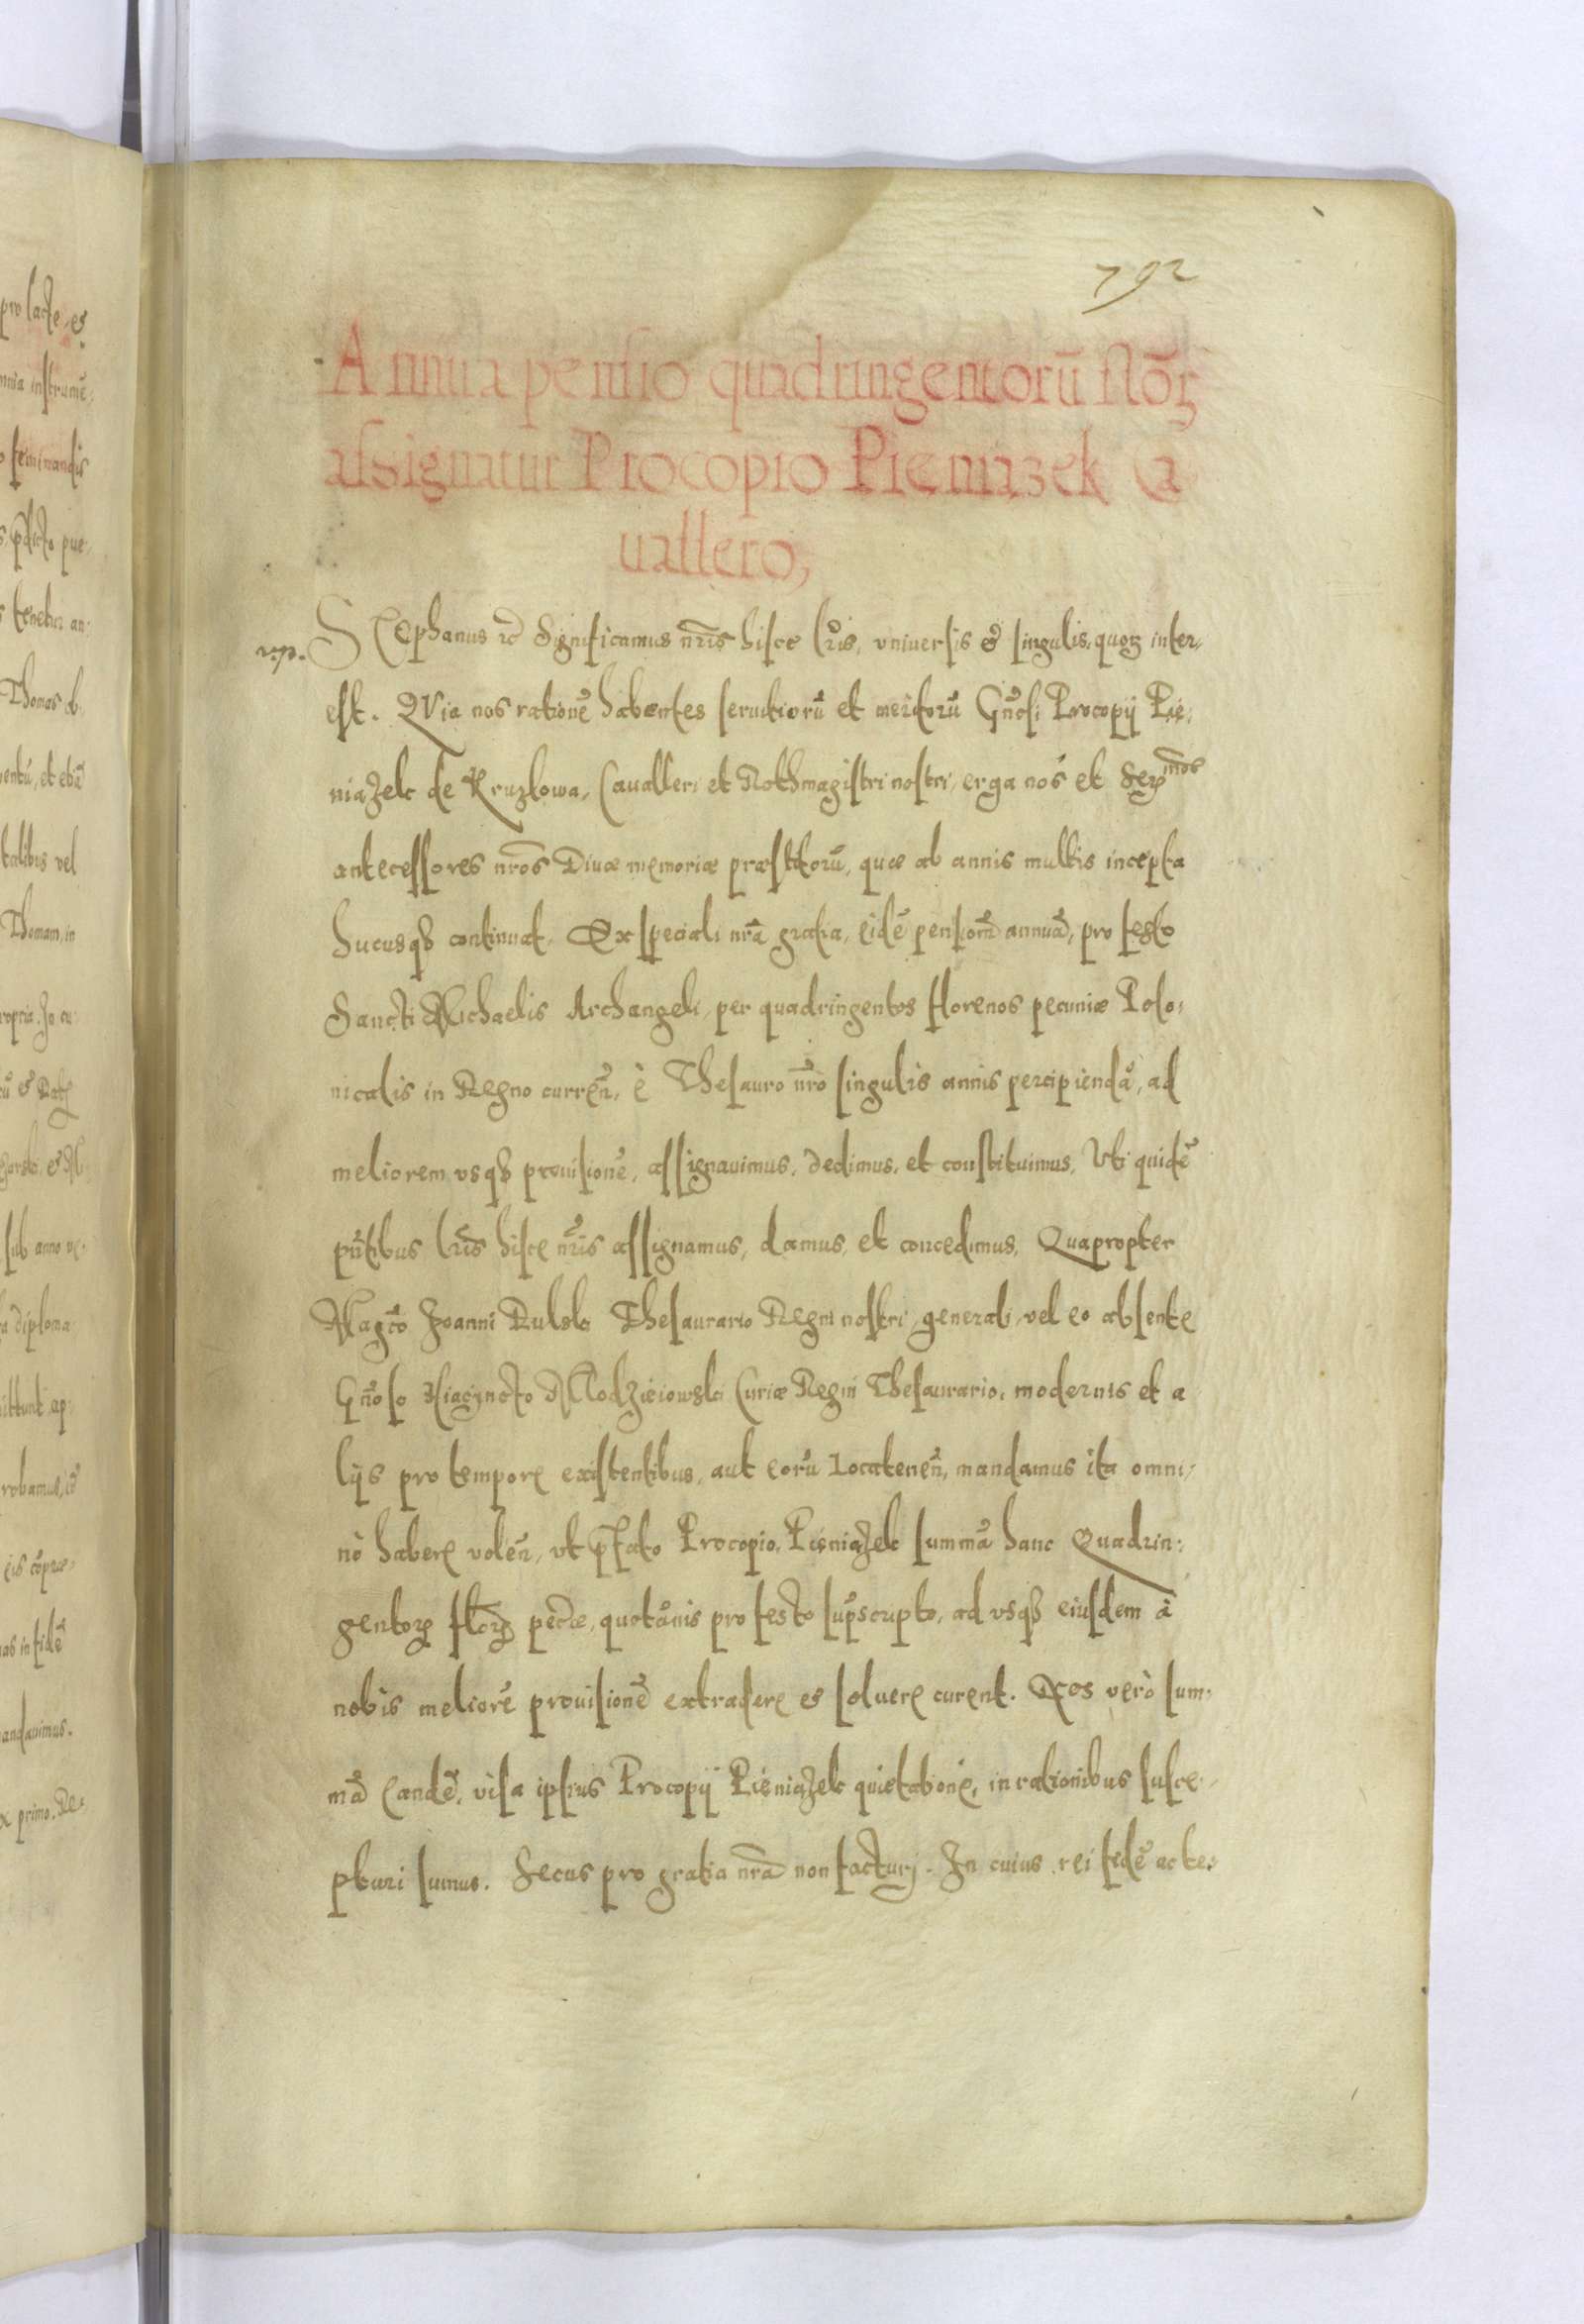 792
Annua pensio quadringentorũ flõꝝ
assignatur Procopio Pieniązek Ca
uallero,
Stephanus ꝛc̃ Significamus nr̃is hisce lr̃is, vniuersis et singulis, quoꝝ inter-
est. QVia nos rationẽ habentes seruitiorũ et meritorũ Gñosi Procopij Pie:
niążek de Kruzlowa, Caualleri et Rothmagistri nostri, erga nos et Serᵐᵒˢ
antecessores nr̃os Diuæ memoriæ præstitorũ, quæ ab annis multis incepta
hucusqꝫ continuat. Ex speciali nr̃a gratia, eidẽ pensionẽ annuã, pro festo
Sancti Michaelis Archangeli, per quadringentos florenos pecuniæ Polo:
nicalis in Regno curreñ, è Thesauro nr̃o singulis annis percipiendã, ad
meliorem vsqꝫ prouisionẽ, assignauimus, dedimus, et constituimus, Vti quidẽ
pñtibus lr̃is hisce nr̃is assignamus, damus, et concedimus, Quapropter
Magc̃o Joanni Dulski Thesaurario Regni nostri, generali, vel eo absente
Gñoso Hiacyncto Młodzieiowski Curiæ Regni Thesaurario, modernis et a
lijs pro tempore existentibus, aut eorũ Locateneñ, mandamus ita omni-
nò habere voleñ, vt p̃fato Procopio, Pieniążek summã hanc Quadrin:
gentoꝝ flõrꝝ pec̃iæ, quotãnis pro festo sup̃scripto, ad vsqꝫ eiusdem à
nobis meliorẽ prouisionẽ extradere et soluere curent. Nos verò sum-
mã eandẽ, visa ipsius Procopij Pieniążek quietatione, in rationibus susce-
pturi sumus. Secus pro gratia nr̃a non facturj. In cuius rei fidẽ ac te: